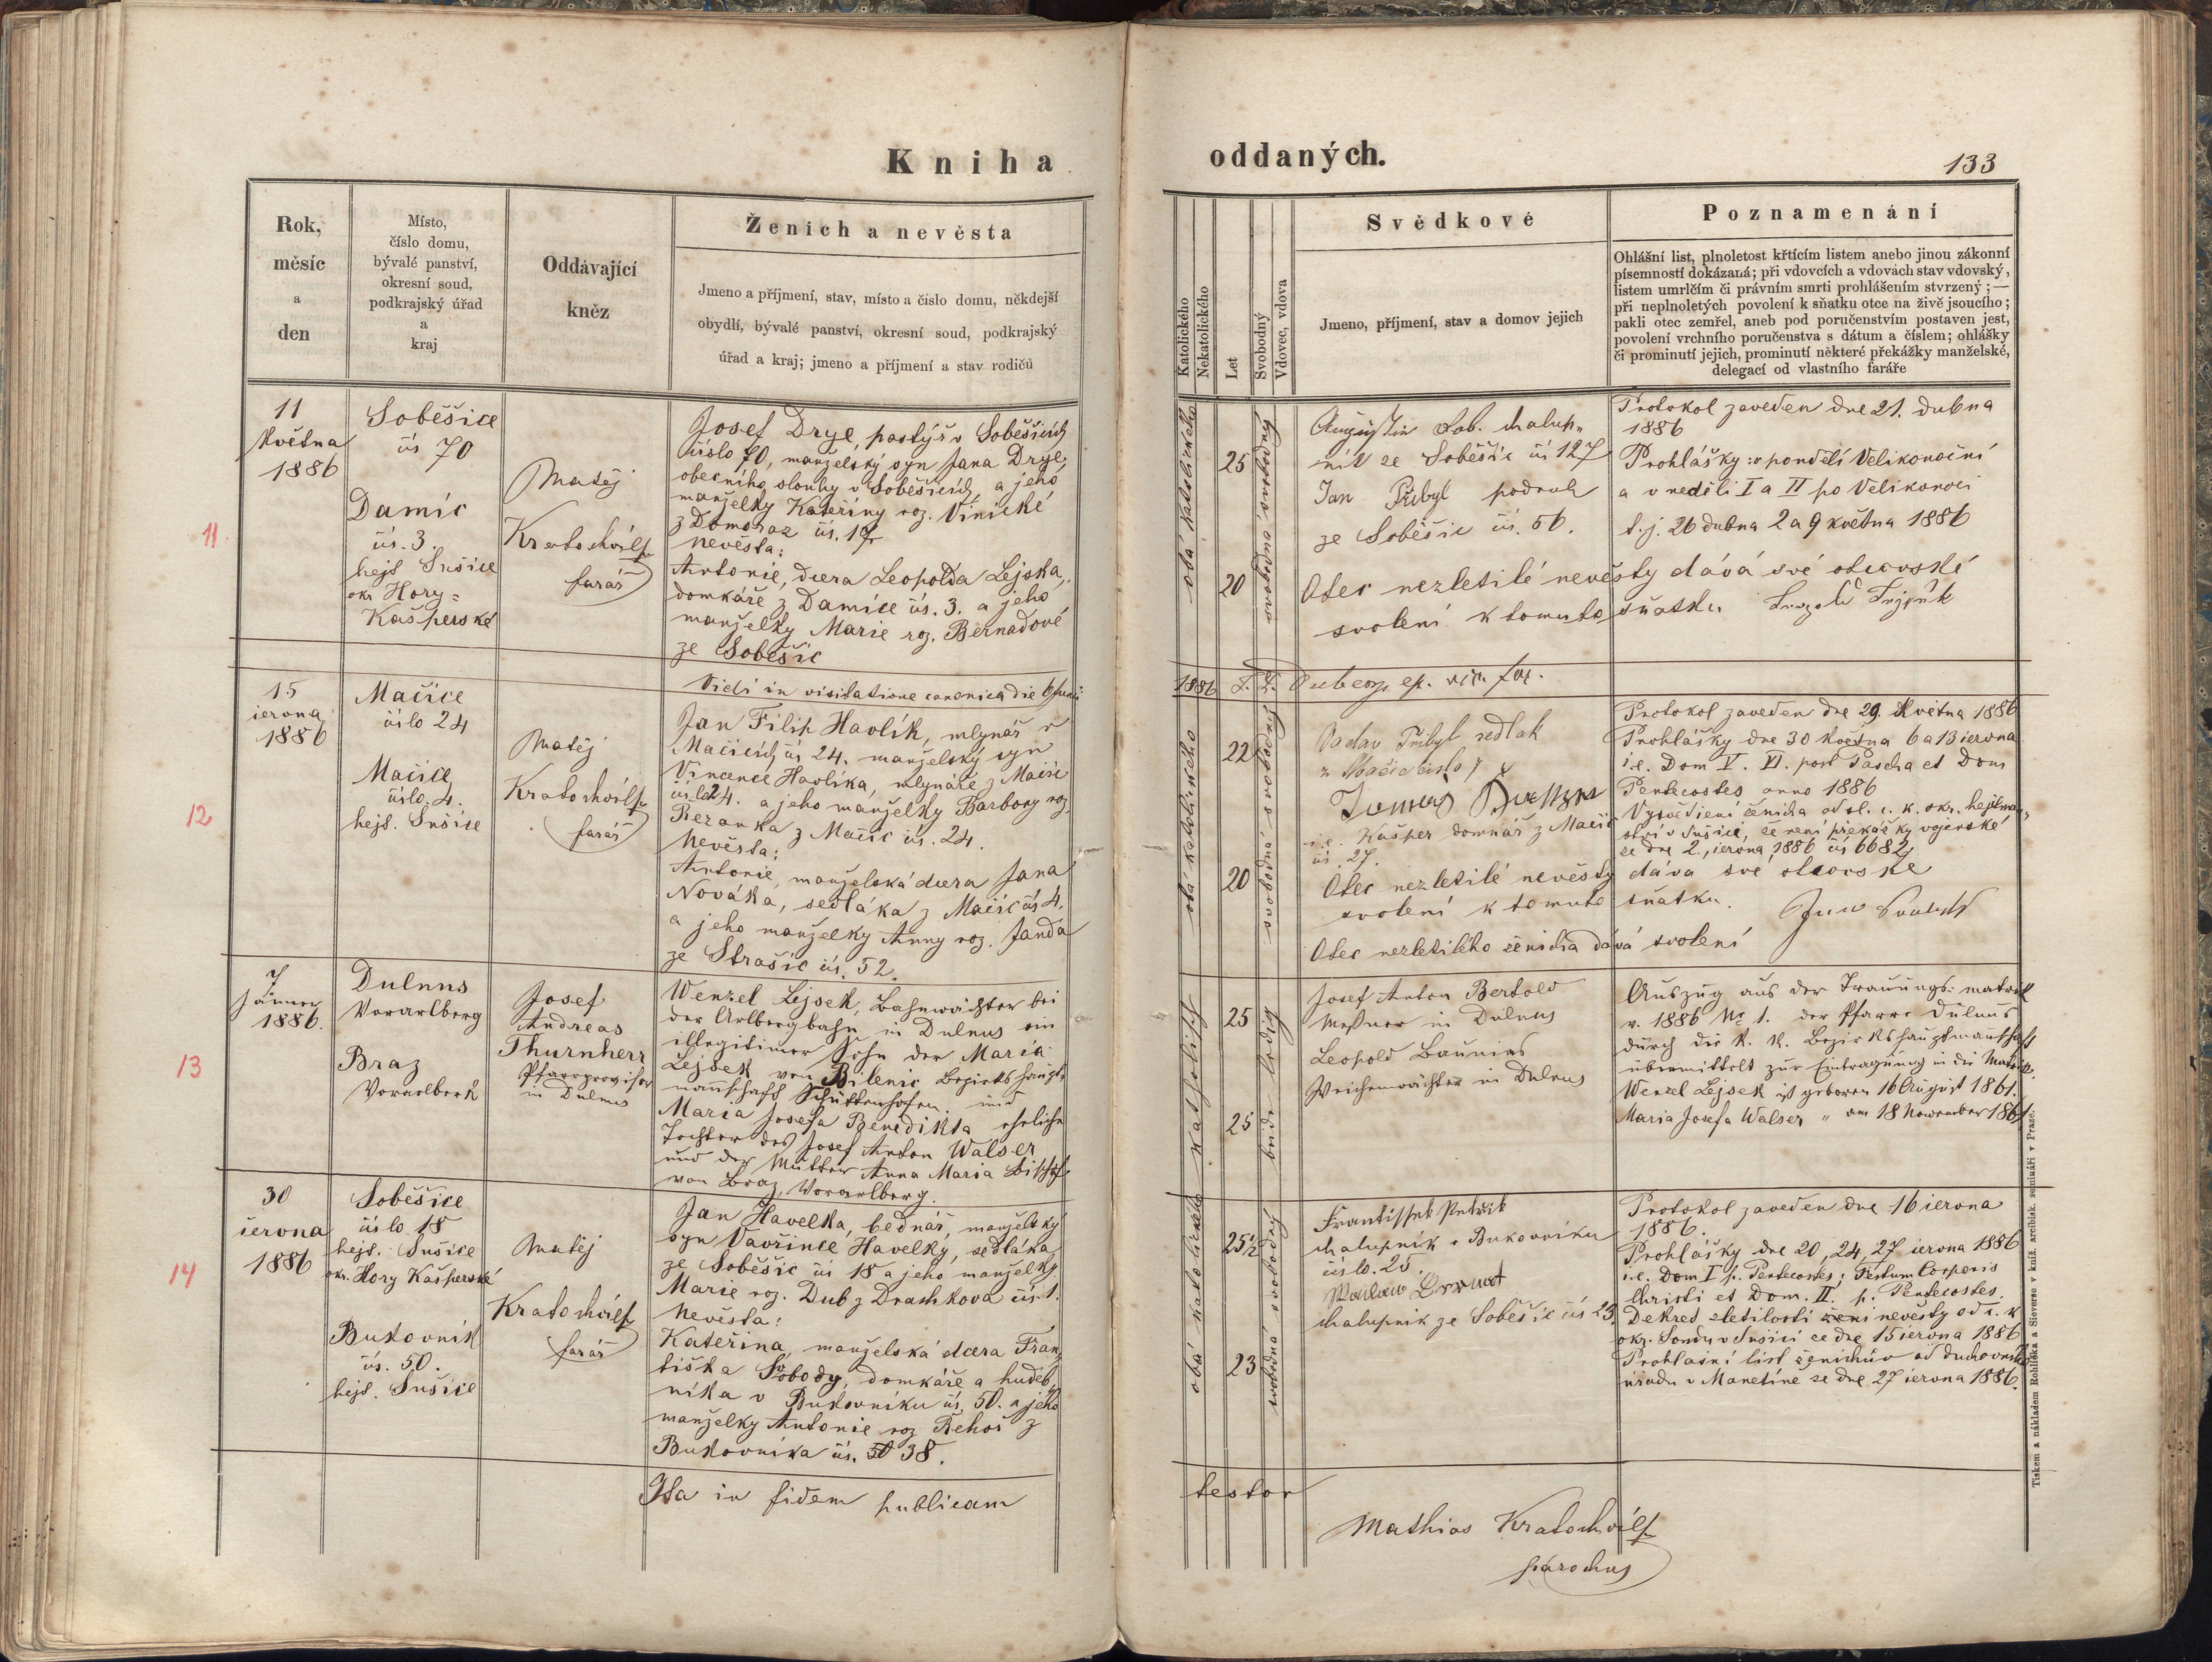 Kniha oddaných.
133
Rok,
měsíc
a
den
Místo,
číslo domu,
bývalé panství,
okresní soud,
podkrajský úřad
a
kraj
Oddávající
kněz
Ženich a nevěsta
Jmeno a příjmení, stav, místo a číslo domu, někdejší
obydlí, bývalé panství, okresní soud, podkrajský
úřad a kraj; jmeno a příjmení a stav rodičů
Katolického
Nekatolického
Let
Svobodný
Vdovec, vdova
Svědkové
Jmeno, příjmení, stav a domov jejich
Poznamenání
Ohlášní list, plnoletost křtícím listem anebo jinou zákonní
písemností dokázaná; při vdovcích a vdovách stav vdovský,
listem umrlčím či právním smrti prohlášením stvrzený; —
při neplnoletých povolení k sňatku otce na živě jsoucího;
pakli otec zemřel, aneb pod poručenstvím postaven jest,
povolení vrchního poručenstva s dátum a číslem; ohlášky
či prominutí jejich, prominutí některé překážky manželské,
delegací od vlastního faráře
11
11
Května
1886
Soběšice
čís 70
Damíc
čís. 3.
hejt Sušice
okr Hory=
Kašperské
Matěj
Kratochvíl
farář
Josef Drye, pastýř v Soběšicích
číslo 70, manželský syn Jana Drye,
obecního slouhy v Soběšicích a jeho
manželky Kateřiny roz. Vinické
z Domoraz čís. 17
Nevěsta:
Antonie, dcera Leopolda Lejska,
domkáře z Damíce čís. 3. a jeho
manželky Marie roz. Bernadové
ze Soběšic
obá katolického
25
20
svobodná svobodný
Augustin Lob. chalup=
ník ze Soběšic čís 127
Jan Přibyl podruh
ze Soběšic čís. 56.
Protokol zaveden dne 21. dubna
1886
Prohlášky: v pondělí Velikonoční
a v neděli I a II po Velikonoci
t. j. 26 dubna 2 a 9 května 1886
Otec nezletilé nevěsty dává své otcovské
svolení k tomuto sňatku
Vidi in visitatione canonica die 6 Junii
1886 ep. vic for.
12
15
června
1886
Mačice
číslo 24
Mačice
číslo 4.
hejt. Sušice
Matěj
Kratochvíl
farář
Jan Filip Havlík, mlynář v
Mačicích čís 24. manželský syn
Vincence Havlíka, mlynáře z Mačic
čísla 24. a jeho manželky Barbory roz.
Beranka z Mačic čís. 24.
Nevěsta:
Antonie, manželská dcera Jana
Nováka, sedláka z Mačic čís 4.
a jeho manželky Anny roz. Janda
ze Strašic čís. 52.
obá katolického
22
20
svobodná svobodný
Václav Přibyl sedlák
z Mačic číslo 7
i.e. Kašper domkář z Mačic
čís. 27.
Protokol zaveden dne 29. Května 1886
Prohlášky dne 30 Května 6 a 13 června
i.e. Dom V. VI. post Pascha et Dom
Pentecostes anno 1886
Vysvědčení ženicha od sl. c. k. okr. hejtman=
ství v Sušici, že není překážky vojenské
ze dne 2., června, 1886 čís 6682,
Otec nezletilé nevěsty dáva své otcovske
svolení k tomuto sňatku.
Otec nezletilého ženicha dává svolení
13
7
Jänner
1886.
Dulnus
Vorarlberg
Braz
Vorarlberk
Josef
Andreas
Thurnherr
Pfarrprovisor
in Dulnus
Wenzel Lejsek, Bahnwächter bei
der Arlbergbahn in Dulnus ein
illegitimer Sohn der Maria
Lejsek von Bilenic Bezirkshaupt=
mannschaft Schüttenhofen. und
Maria Josefa Benedikta eheliche
Tochter des Josef Anton Walser
und der Mutter Anna Maria Bischof
von Braz, Vorarlberg.
katholisch
25
25
beide ledig
Josef Anton Bertold
Meßner in Dulnus
Leopold
Weichenwächter in Dulnus
Auszug aus der Trauungs-matrik
v. 1886 No 1. der Pfarre Dulnus
durch die k. k. Bezirkshauptmannschaft
übermittelt zur Eintragung in die Matrik.
Wenzel Lejsek ist geboren 16 August 1861.
Maria Josefa Walser " am 18 November 1861.
14
30
června
1886
Soběšice
číslo 18
hejt. Sušice
okr. Hory Kašperské
Bukovník
čís. 50.
hejt. Sušice
Matěj
Kratochvíl
farář
Jan Havelka, bednář, manželský
syn Vavřince Havelky, sedláka
ze Soběšic čís 18 a jeho manželky
Marie roz. Dub z Drachkova čís. 1.
Nevěsta:
Kateřina, manželská dcera Fran=
tiška Sobody, domkáře a hudeb=
níka v Bukovníku čís. 50. a jeho
manželky Antonie roz Řehoř z
Bukovníka čís. 38.
obá katolického
25 1/2
23
svobodná svobodný
Frantissek Petrzik
chalupník z Bukovníku
číslo. 25.
chalupník ze Soběšic čís 23.
Protokol zaveden dne 16 června
1886.
Prohlášky dne 20, 24, 27 června 1886
i.e. Dom I p. Pentecostes; Festum Corporis
Christi et Dom. II. p. Pentecostes.
Dekret zletilosti nevěsty od c. k
okr. Soudu v Sušici ze dne 15 června 1886
Prohlašní list ženichův od duchovního
úřadu v Manetíně ze dne 27 června 1886.
Ita in fidem publicam testor
Mathias Kratochvíl
parochus
Tiskem a nákladem Rohlíčka a Sieverse v kníž. arcibisk. semináři v Praze.